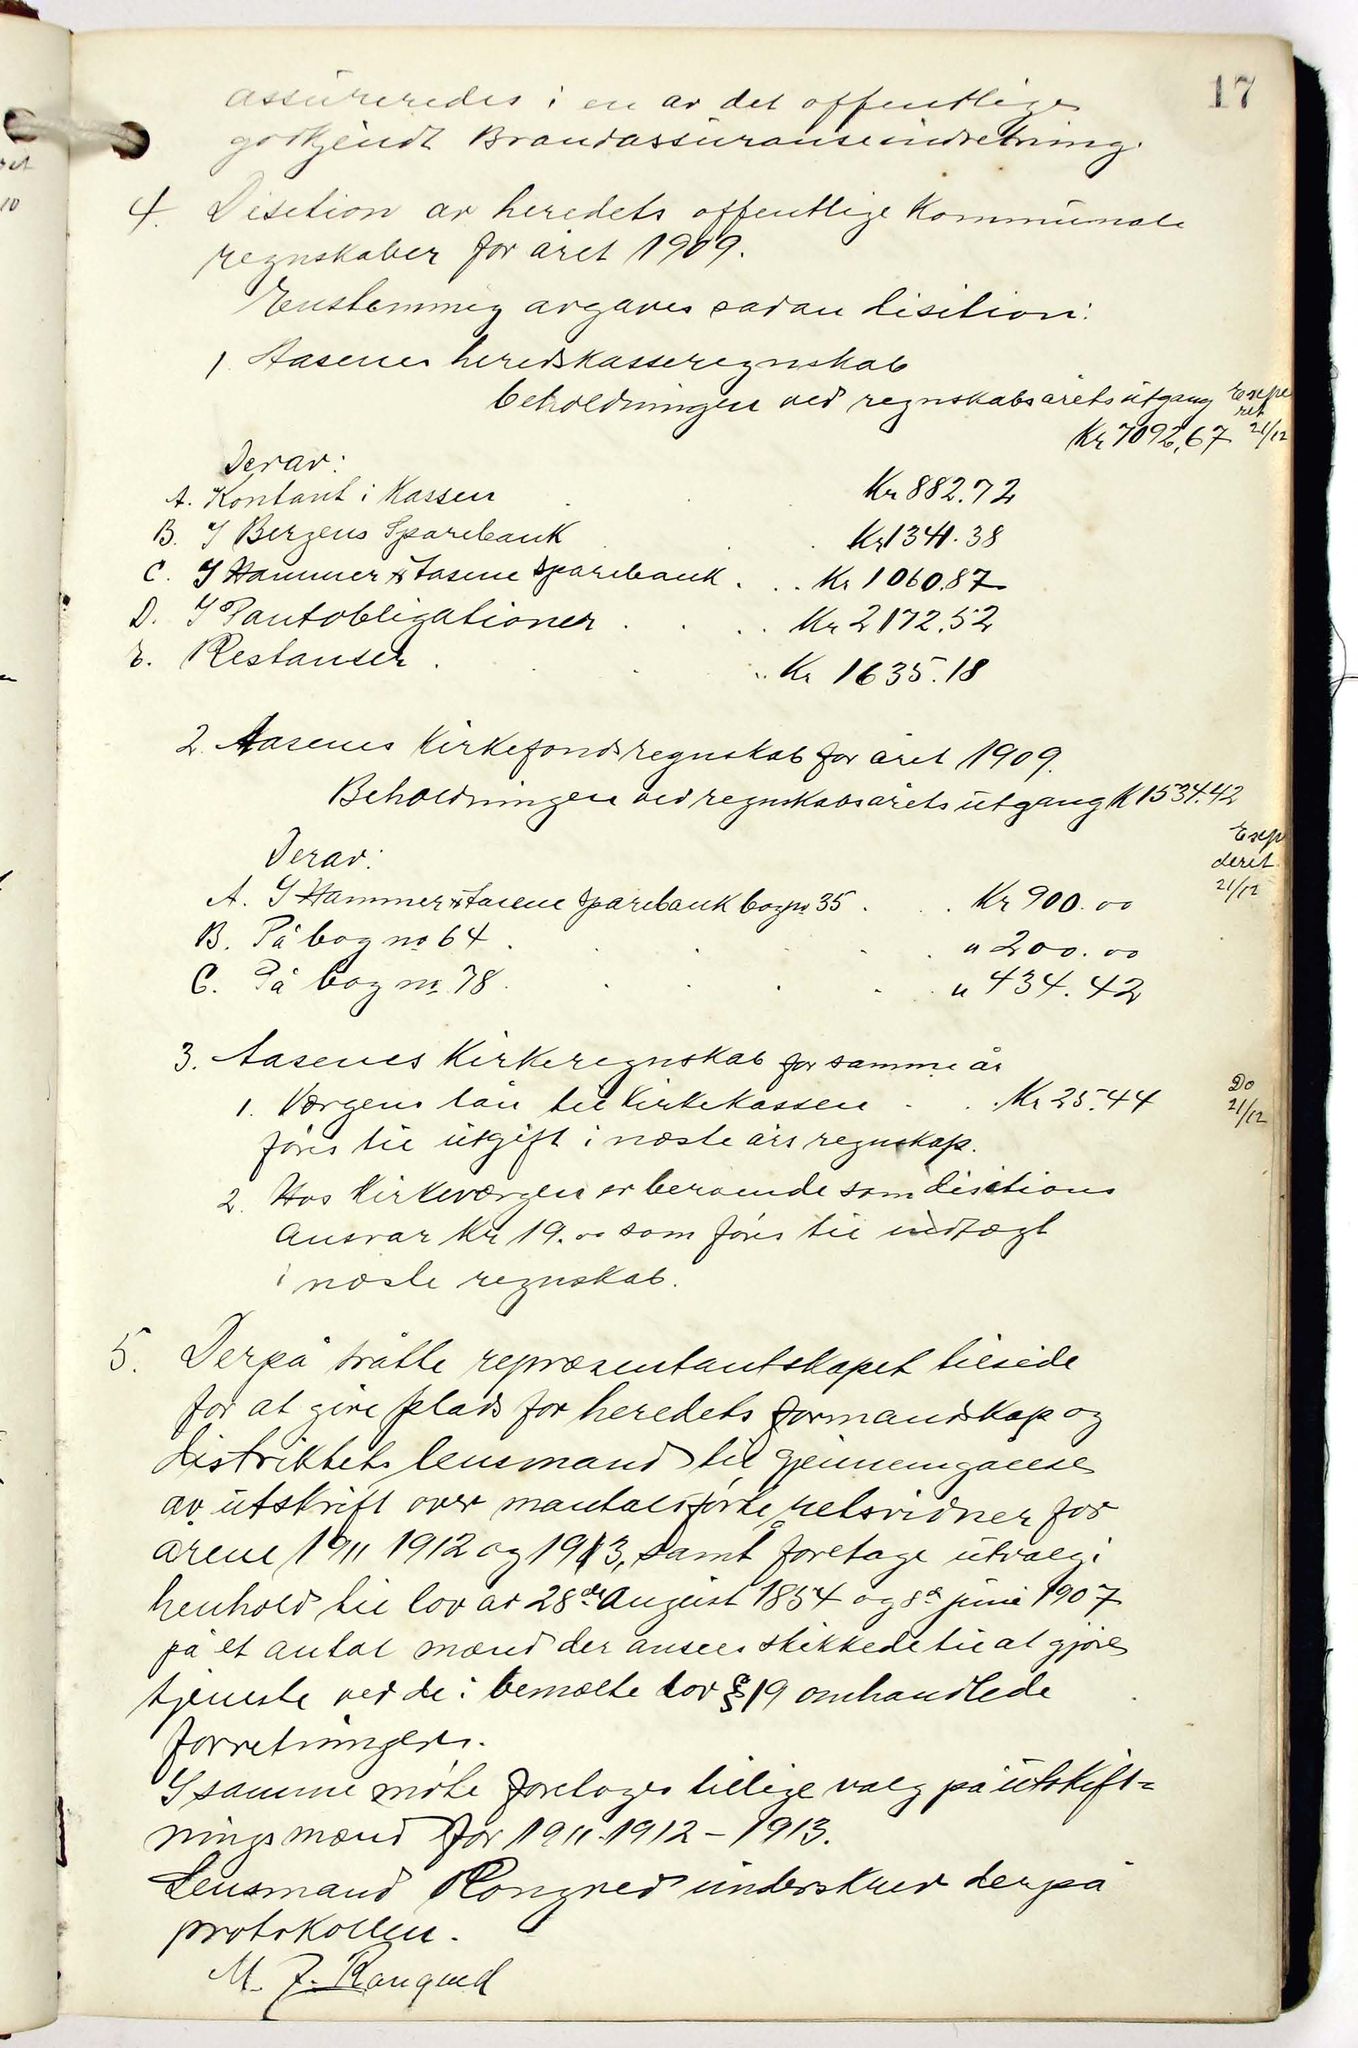 17
assureredes i en av det offentlige
godkjendt Brandassuranseindretning.
4. Disetion av heredets offentlige kommunale
regnskaber for året 1909.
Enstemmig avgaves sadan disition:
1. Aasenes heredskasseregnskab
beholdningen ved regnskabsårets utgang
Kr 7092,67
Expe
ret
21/12
Derav:
A. Kontant i Kassen . . Kr 882.72
B. I Bergens Sparebank . . . Kr 1341.38
C. I Hammer & Aasene Sparebank . . . Kr 1060.87
D. I Pantobligationer . . . . Kr 2172.52
E. Restanser . . . . Kr 1635.18
2. Aasenes Kirkefondsregnskab for året 1909.
Beholdningen ved regnskabsårets utgang K 1534.42
Exp
deret
21/12
Derav:
A. I Hammer & Aasene Sparebank bog no 35 . . Kr 900.00
B. På bog no 64 . . . . . " 200.00
C. På bog no 78 . . . . . " 434.42
3. Aasenes Kirkeregnskab for samme år
1. Værgens lån til Kirkekassen . . . Kr 25.44
Do
21/12
føres til utgift i næste års regnskap.
2. Hos Kirkeværgen er beroende som disitions
Ansvar Kr 19.00 som føres til indtægt
i næste regnskab.
5. Derpå tråtte repræsentantskapet tilside
for at give plads for heredets formandskap og
distriktets lensmand til gjennemgåelse
av utskrift over mantalsførte retsvidner for
årene 1911 1912 og 1913, samt foretage utvalg i
henhold til lov av 28de August 1854 og 8de juni 1907
på et antal mænd der ansees skikkede til at gjøre
tjeneste ved de i bemælte lov § 19 omhandlede
forretninger.
I samme møte foretoges tillige valg på utskift=
ningsmænd for 1911-1912-1913.
Lensmand Rongved underskrev derpå
protokollen.
M. J. Rongved